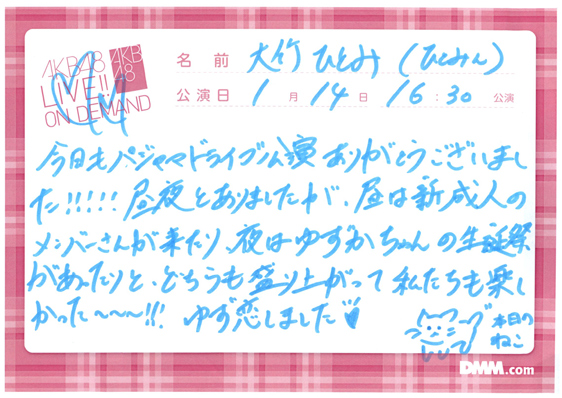 AKB48
LIVE!!
ON DEMAND
AKB
48
名前 大竹ひとみ(ひとみん)
公演日 1月14日 16:30 公演
今日もパジャマドライブ公演ありがとうございまし
た!!!!! 昼夜とありましたが、昼は新成人の
メンバーさんが来たり、夜はゆずかちゃんの生誕祭
があったりと、どちらも盛り上がって私たちも楽し
かった〜〜〜!!! ゆず恋しました
本日の
ねこ
DMM.com